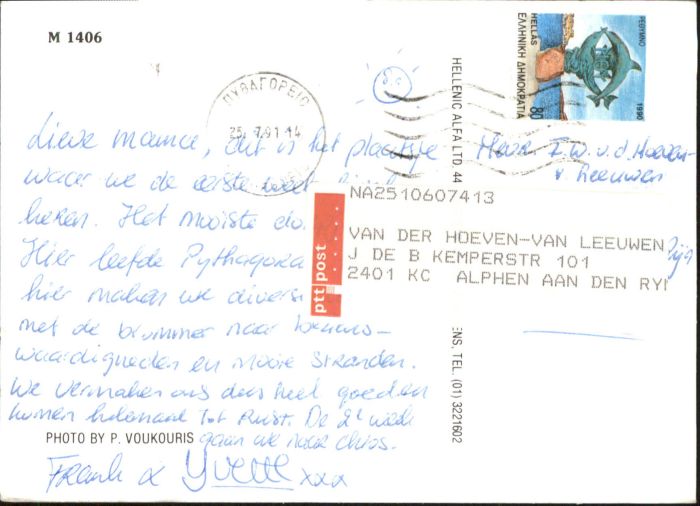 M 1406
Lieve mamma, dit is het plaatsje
waar we de eerste week
Het mooiste
Hier leefde Pythagora
hier maken we diversi
met de brommer naar
waardigheden en mooie stranden.
We vermaken ons dus heel goed en
komen helemaal tot Rust. De 2e week
gaan we naar chios.
Frank & Yvette xxx
PHOTO BY P. VOUKOURIS
ΠΥΘΑΓΟΡΕΙΟ
25. 7.91.14
HELLENIC ALFA LTD. 44
ENS, TEL. (01) 3221602
ΡΕΘΥΜΝΟ
1990
HELLAS
ΕΛΛΗΝΙΚΗ ΔΗΜΟΚΡΑΤΙΑ
80
v.d. Hoeven
v. Leeuwen
NA2510607413
VAN DER HOEVEN-VAN LEEUWEN
J DE B KEMPERSTR 101
2401 KC ALPHEN AAN DEN RYN
ptt post